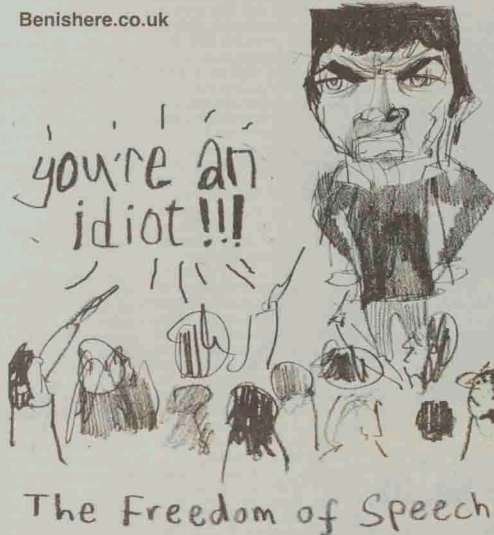 Benishere.co.uk
you're an
idiot!!!
The Freedom of Speech